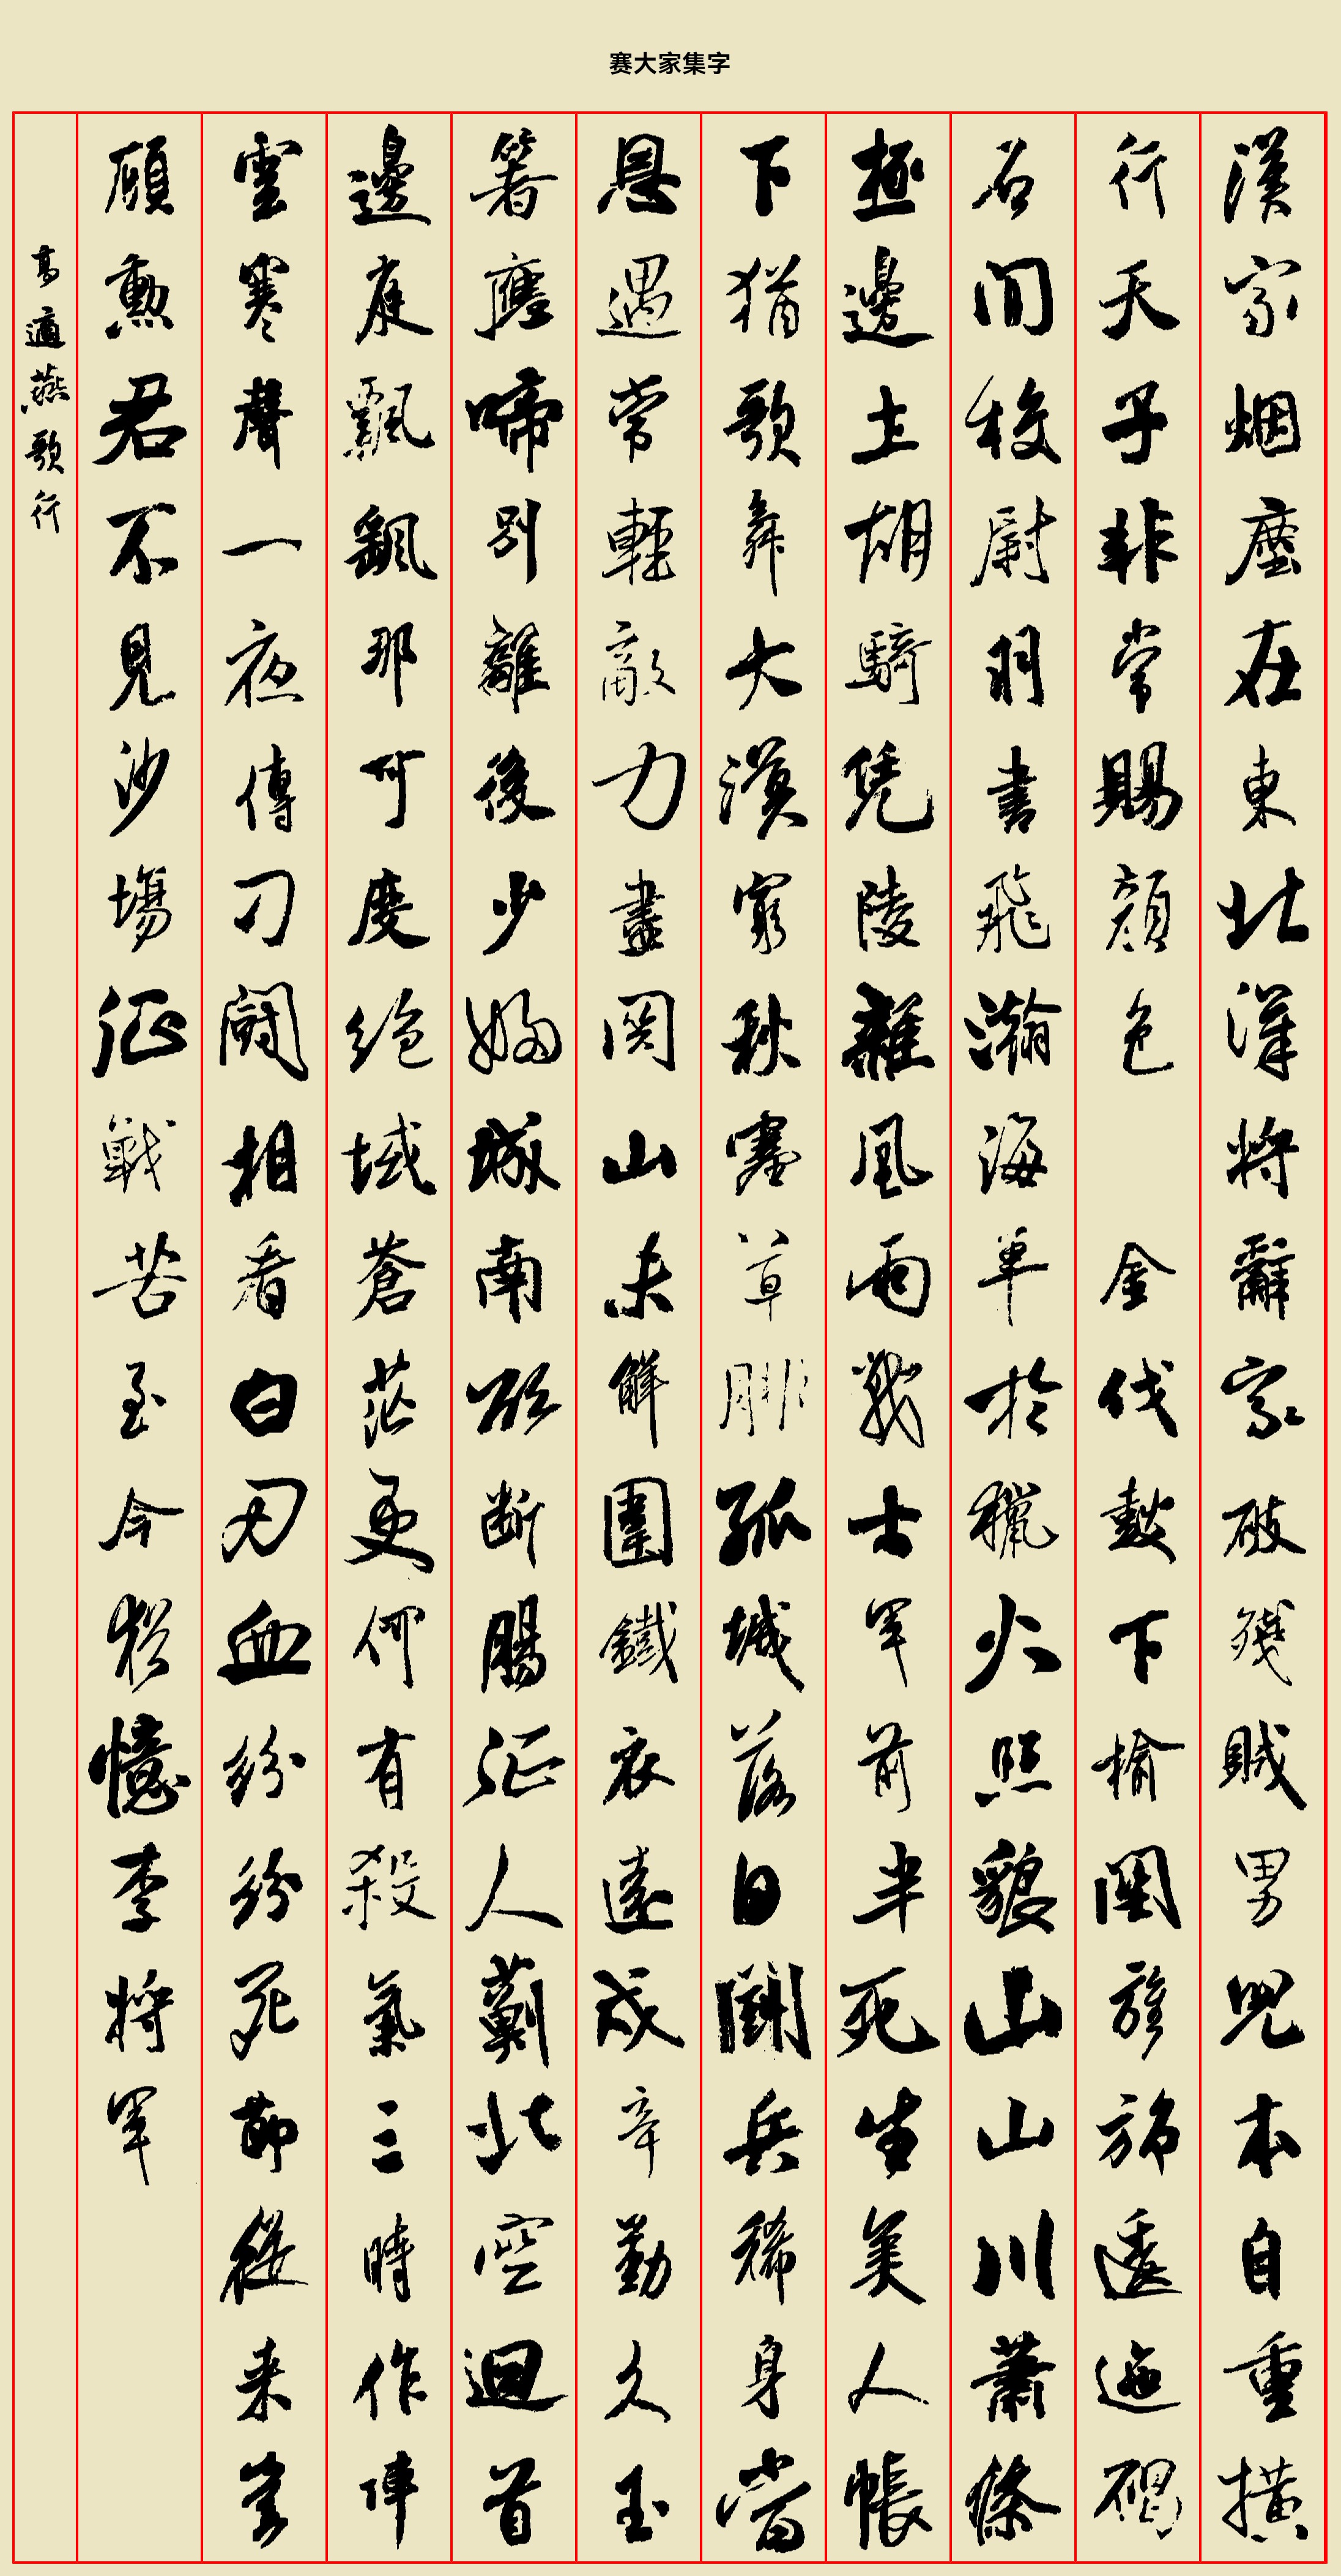 赛大家集字
漢家烟塵在東北漢將辭家破殘賊男兒本自重橫
行天子非常賜顏色 金伐鼓下榆關旌旆逶迤碣
石間校尉羽書飛瀚海單於獵火照狼山山川蕭條
極邊土胡騎凭陵雜風雨戰士軍前半死生美人帳
下猶歌舞大漠窮秋塞草腓孤城落日鬥兵稀身當
恩遇常輕敵力盡関山未解圍鐵衣遠戍辛勤久玉
箸應啼別離後少婦城南欲断腸征人薊北空迴首
邊庭飄颻那可度絕域蒼茫更何有殺氣三時作陣
雲寒聲一夜傳刁鬥相看白刃血紛紛死節從来豈
顧勳君不見沙場征戰苦至今猶憶李將軍
高適燕歌行